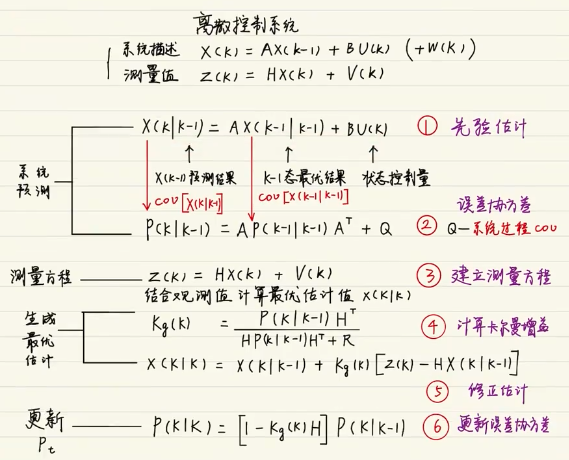 离散控制系统
系统描述 X(k) = AX(k-1) + BU(k) (+W(k))
测量值 Z(k) = HX(k) + V(k)
X(k|k-1) = AX(k-1|k-1) + BU(k) ① 先验估计
系统预测
X(k-1)预测结果 k-1态最优结果 状态控制量
cov[X(k|k-1)] cov[X(k-1|k-1)]
误差协方差
P(k|k-1) = AP(k-1|k-1)Aᵀ + Q ② Q—系统过程cov
测量方程 Z(k) = HX(k) + V(k) ③ 建立测量方程
结合观测值 计算最优估计值 X(k|k)
生成最优估计
Kg(k) = P(k|k-1)Hᵀ / HP(k|k-1)Hᵀ+R ④ 计算卡尔曼增益
X(k|k) = X(k|k-1) + Kg(k)[Z(k)-HX(k|k-1)]
⑤ 修正估计
更新 Pt P(k|k) = [1-Kg(k)H]P(k|k-1) ⑥ 更新误差协方差